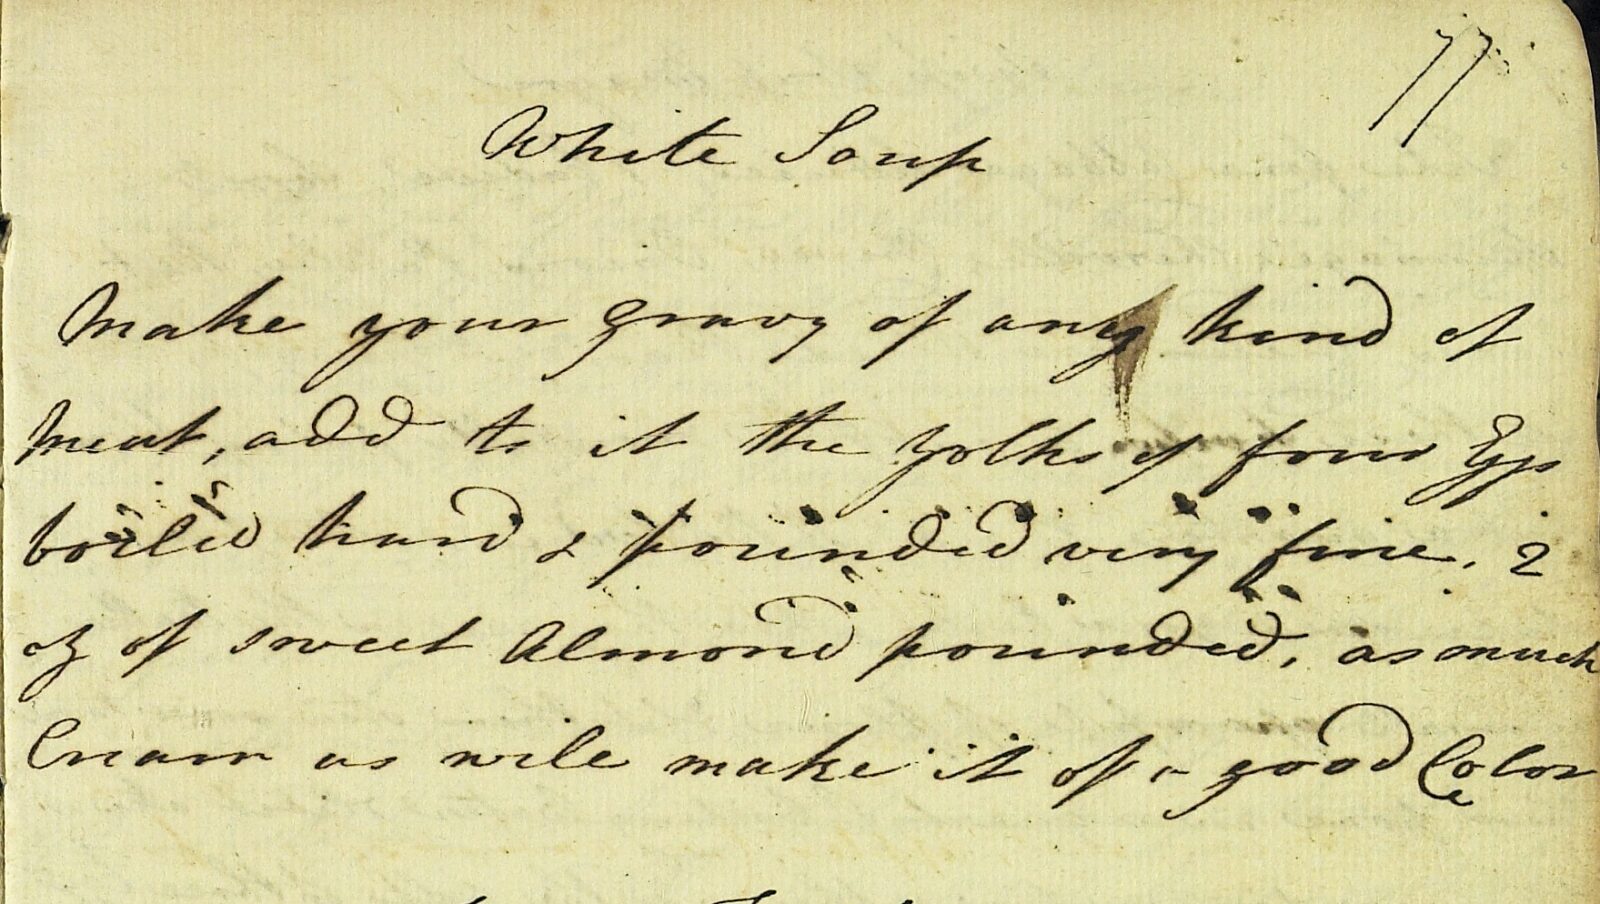 77
White Soup
Make your gravy of any kind of
Meat, add to it the yolks of four Eggs
boiled hard & pounded very fine, 2
oz of sweet Almond pounded, as much
Cream as will make it of a good Color